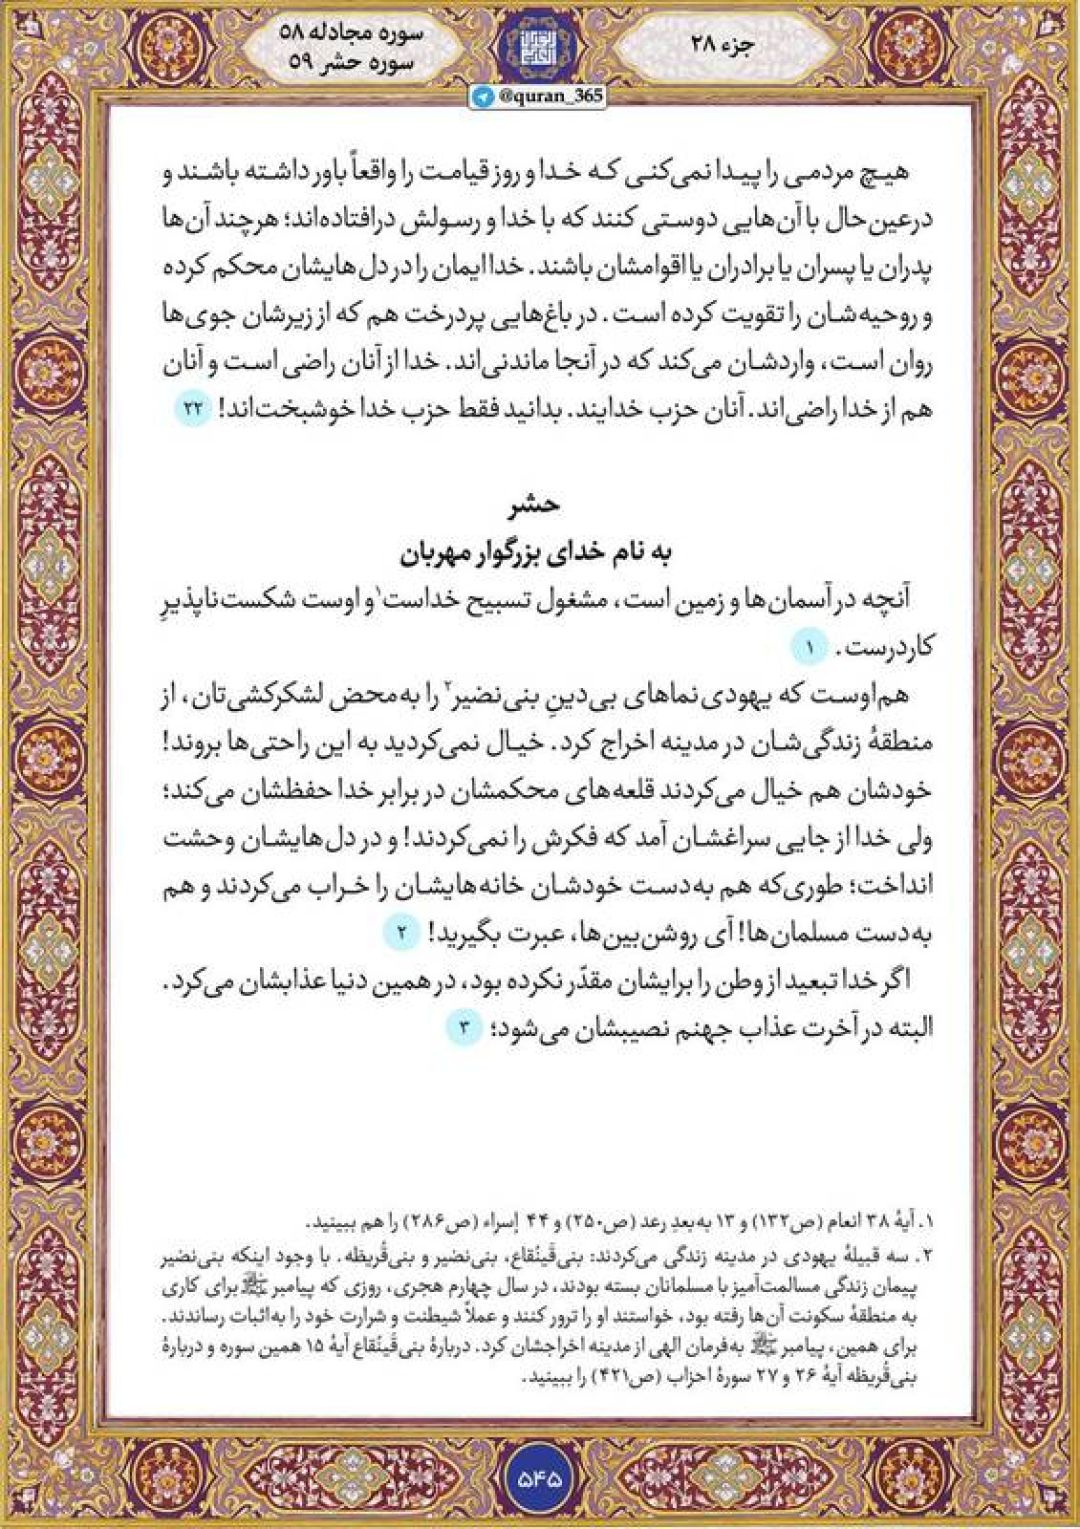 جزء ۲۸
سوره مجادله ۵۸
سوره حشر ۵۹
@quran_365
هیچ مردمی را پیدا نمی‌کنی که خدا و روز قیامت را واقعاً باور داشته باشند و
درعین‌حال با آن‌هایی دوستی کنند که با خدا و رسولش درافتاده‌اند؛ هرچند آن‌ها
پدران یا پسران یا برادران یا اقوامشان باشند. خدا ایمان را در دل‌هایشان محکم کرده
و روحیه‌شان را تقویت کرده است. در باغ‌هایی پردرخت هم که از زیرشان جوی‌ها
روان است، واردشان می‌کند که در آنجا ماندنی‌اند. خدا از آنان راضی است و آنان
هم از خدا راضی‌اند. آنان حزب خدایند. بدانید فقط حزب خدا خوشبخت‌اند! ۲۲
حشر
به نام خدای بزرگوار مهربان
آنچه در آسمان‌ها و زمین است، مشغول تسبیح خداست۱ و اوست شکست‌ناپذیرِ
کاردرست. ۱
هم‌اوست که یهودی‌نماهای بی‌دینِ بنی‌نضیر۲ را به‌محض لشکرکشی‌تان، از
منطقهٔ زندگی‌شان در مدینه اخراج کرد. خیال نمی‌کردید به این راحتی‌ها بروند!
خودشان هم خیال می‌کردند قلعه‌های محکمشان در برابر خدا حفظشان می‌کند؛
ولی خدا از جایی سراغشان آمد که فکرش را نمی‌کردند! و در دل‌هایشان وحشت
انداخت؛ طوری‌که هم به‌دست خودشان خانه‌هایشان را خراب می‌کردند و هم
به‌دست مسلمان‌ها! آی روشن‌بین‌ها، عبرت بگیرید! ۲
اگر خدا تبعید از وطن را برایشان مقدّر نکرده بود، در همین دنیا عذابشان می‌کرد.
البته در آخرت عذاب جهنم نصیبشان می‌شود؛ ۳
۱. آیهٔ ۳۸ انعام (ص۱۳۲) و ۱۳ به‌بعدِ رعد (ص۲۵۰) و ۴۴ إسراء (ص۲۸۶) را هم ببینید.
۲. سه قبیلهٔ یهودی در مدینه زندگی می‌کردند: بنی‌قَینُقاع، بنی‌نضیر و بنی‌قُریظه. با وجود اینکه بنی‌نضیر
پیمان زندگی مسالمت‌آمیز با مسلمانان بسته بودند، در سال چهارم هجری، روزی که پیامبر ﷺ برای کاری
به منطقهٔ سکونت آن‌ها رفته بود، خواستند او را ترور کنند و عملاً شیطنت و شرارت خود را به‌اثبات رساندند.
برای همین، پیامبر ﷺ به‌فرمان الهی از مدینه اخراجشان کرد. دربارهٔ بنی‌قَینُقاع آیهٔ ۱۵ همین سوره و دربارهٔ
بنی‌قُریظه آیهٔ ۲۶ و ۲۷ سورهٔ احزاب (ص۴۲۱) را ببینید.
۵۴۵